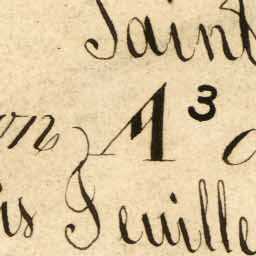 Saint
on A³
is Feuille